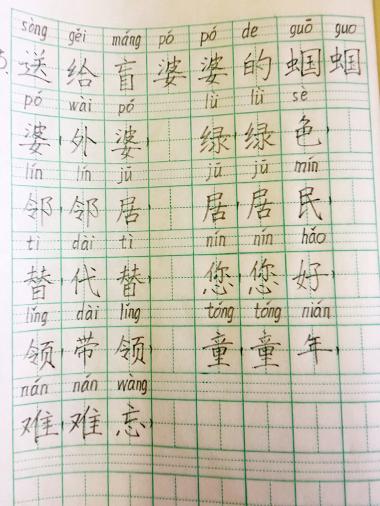 sòng gěi máng pó pó de guō guo
5. 送给盲婆婆的蝈蝈
pó wài pó lǜ lǜ sè
婆(外婆) 绿(绿色)
lín lín jū jū jū mín
邻(邻居) 居(居民)
tì dài tì nín nín hǎo
替(代替) 您(您好)
lǐng dài lǐng tóng tóng nián
领(带领) 童(童年)
nán nán wàng
难(难忘)